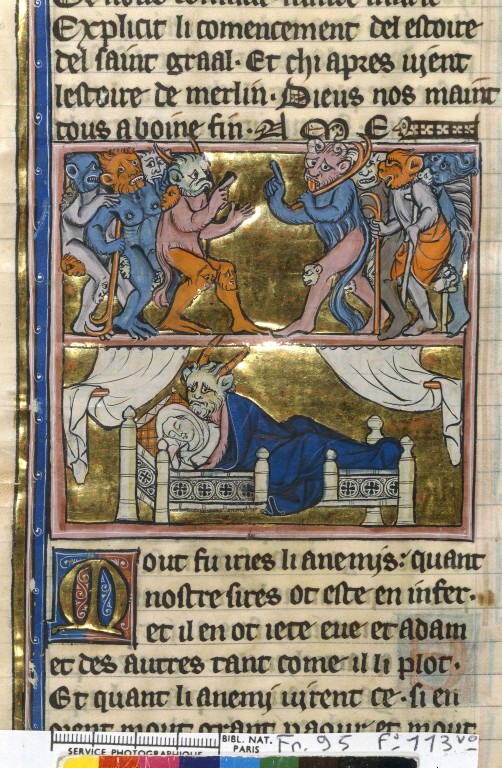 Explicit li comencement del estoire
del saint graal. Et chi apres vient
lestoire de merlin. Dieus nos maint
tous a boine fin. A M E N
Mout fu iries li anemis: quant
nostre sires ot este en infer.
et il en ot iete eue et adam
et des autres tant come il li plot.
Et quant li anemi virent ce. si en
orent mout grant paour et mout
SERVICE PHOTOGRAPHIQUE
BIBL. NAT.
PARIS
Fr. 95 Fº 113 vº